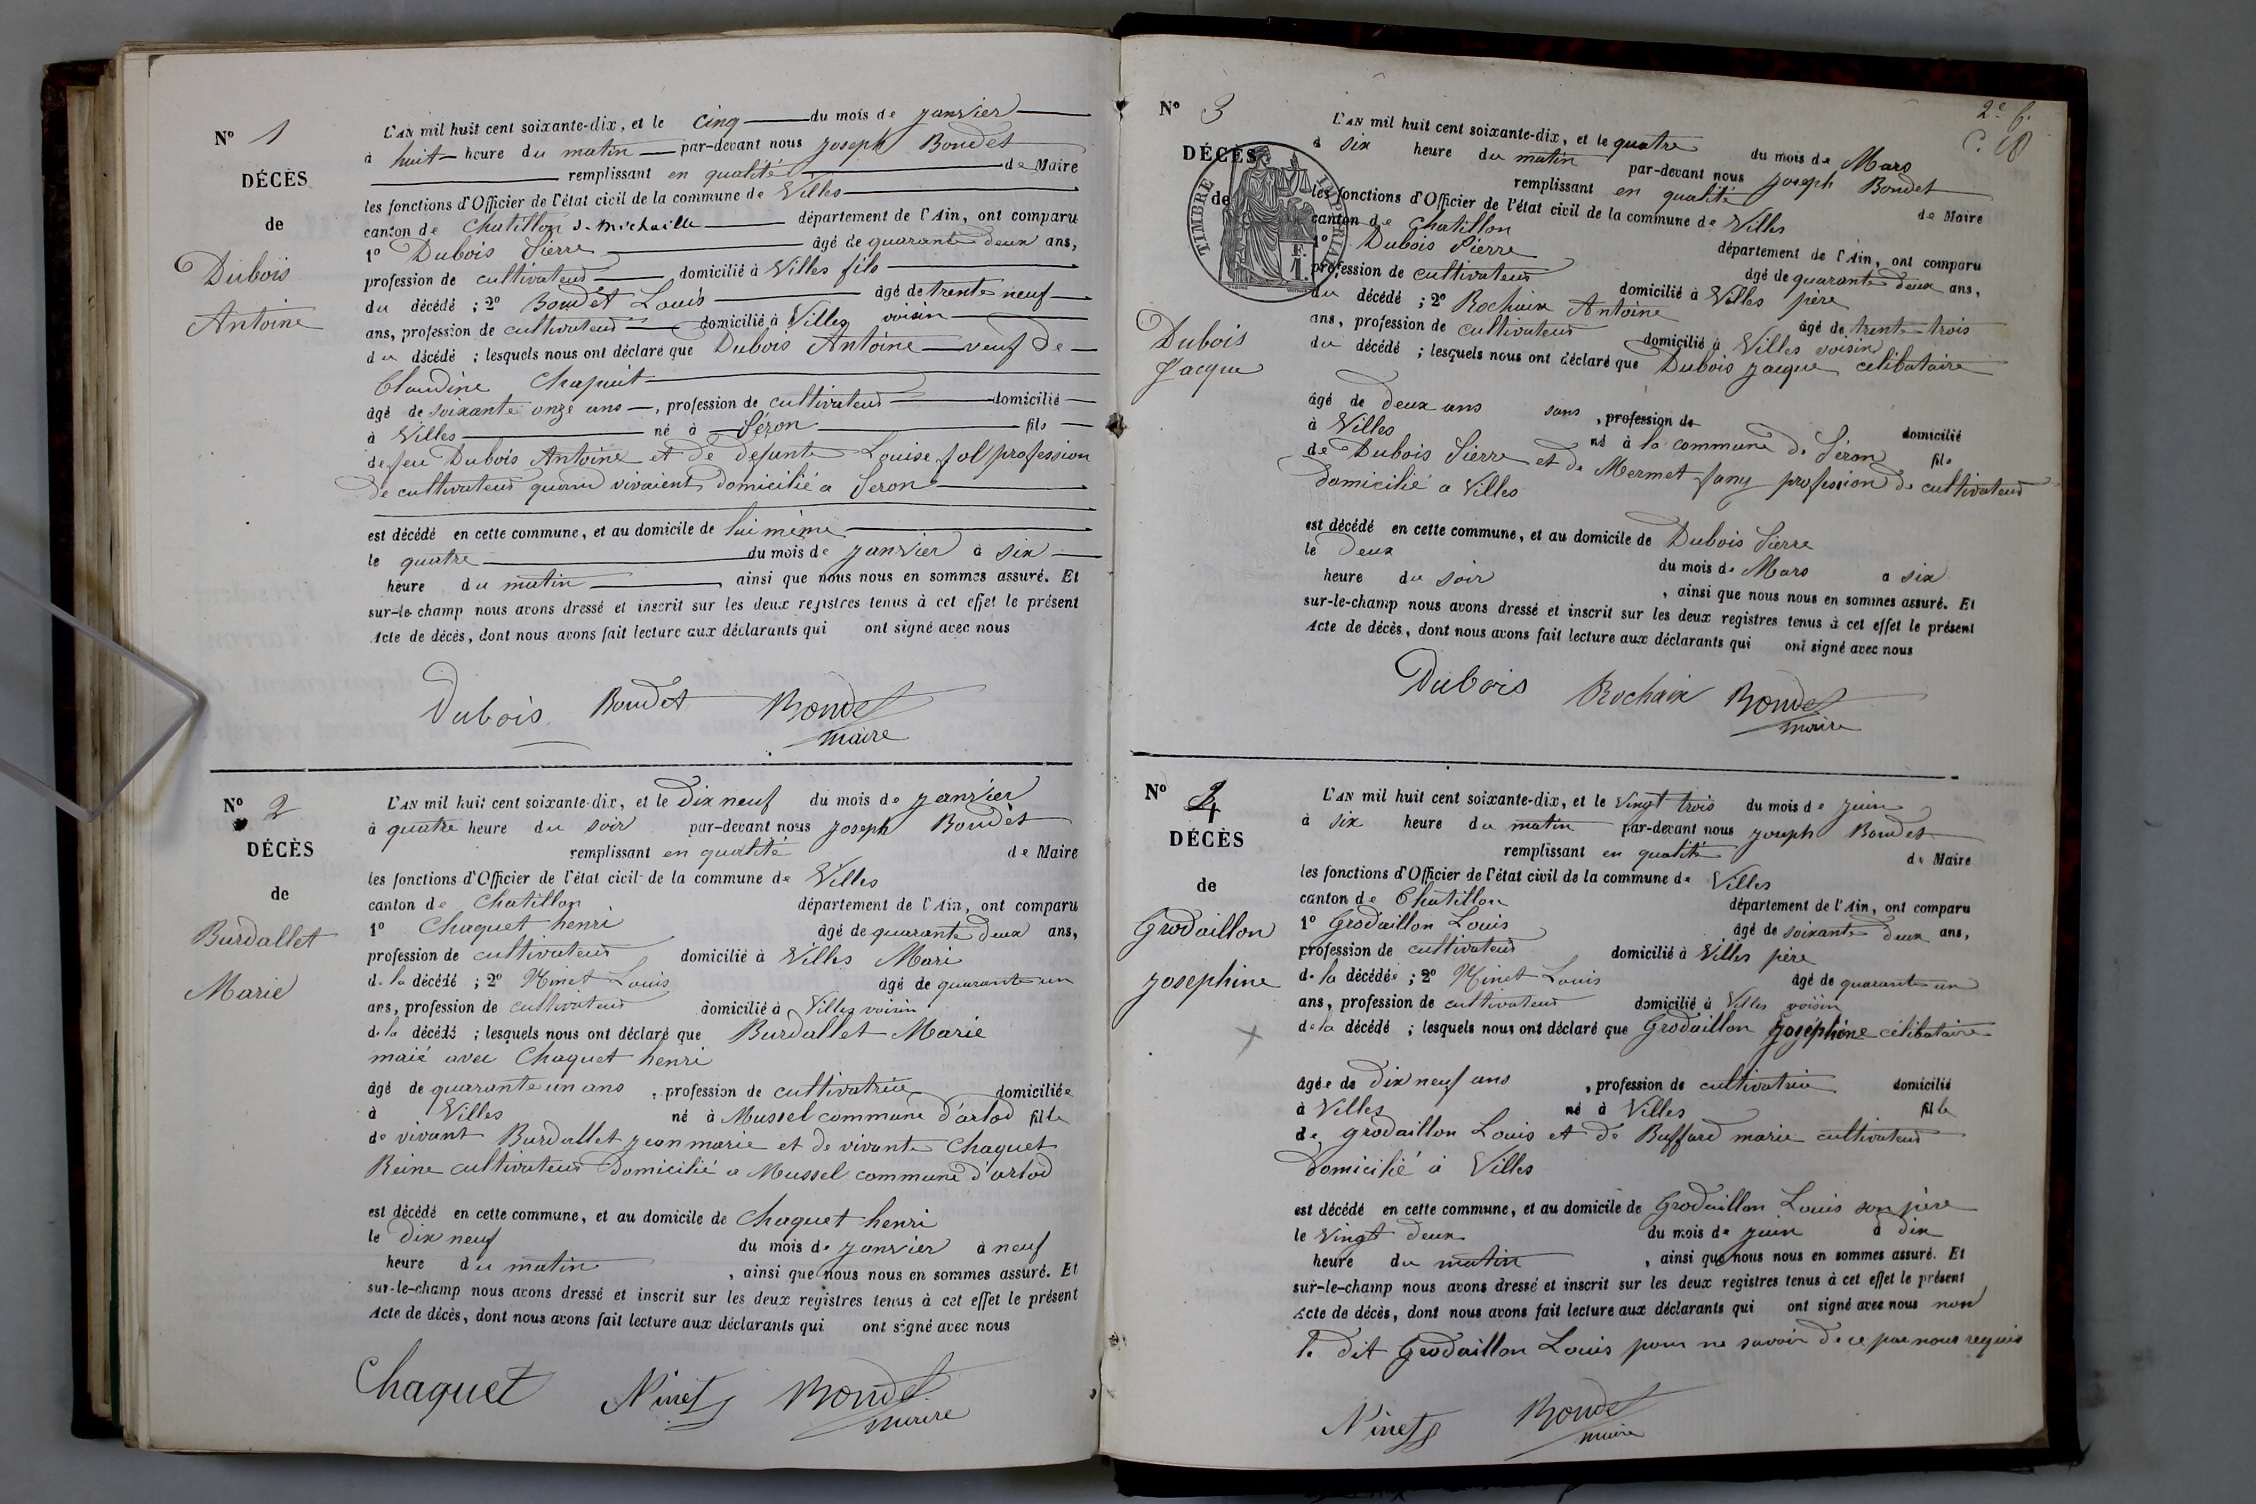 N° 1
DÉCÈS
de
Dubois
Antoine
L'AN mil huit cent soixante-dix, et le cinq du mois de janvier
à huit heure du matin par-devant nous joseph Boudet
remplissant en qualité de Maire
les fonctions d'Officier de l'état civil de la commune de Villes
canton de Chatillon d. michaille département de l'Ain, ont comparu
1° Dubois Pierre âgé de quarante deux ans,
profession de cultivateur domicilié à Villes fils
du décédé ; 2° Boudet Louis âgé de trente neuf
ans, profession de cultivateur domicilié à Villes voisin
du décédé ; lesquels nous ont déclaré que Dubois Antoine veuf de
Claudine Chapuit
âgé de soixante onze ans, profession de cultivateur domicilié
à Villes né à Séron fils
de feu Dubois Antoine et de defunte Louise fol profession
de cultivateur quand vivaient domicilié a Seron
est décédé en cette commune, et au domicile de lui même
le quatre du mois de janvier à six
heure du matin, ainsi que nous nous en sommes assuré. Et
sur-le-champ nous avons dressé et inscrit sur les deux registres tenus à cet effet le présent
Acte de décès, dont nous avons fait lecture aux déclarants qui ont signé avec nous
Dubois Boudet Boudet
maire
N° 2
DÉCÈS
de
Burdallet
Marie
L'AN mil huit cent soixante-dix, et le dix neuf du mois de janvier
à quatre heure du soir par-devant nous joseph Boudet
remplissant en qualité de Maire
les fonctions d'Officier de l'état civil de la commune de Villes
canton de Chatillon département de l'Ain, ont comparu
1° Chaquet henri âgé de quarante deux ans,
profession de cultivateur domicilié à Villes Mari
de la décédé ; 2° Ninet Louis âgé de quarante un
ans, profession de cultivateur domicilié à Villes voisin
de la décédé ; lesquels nous ont déclaré que Burdallet Marie
maié avec Chaquet henri
âgé de quarante un ans, profession de cultivatrice domiciliée
à Villes né à Mussel commune d'arlod fille
de vivant Burdallet jean marie et de vivante Chaquet
Reine cultivateur domicilié a Mussel commune d'arlod
est décédé en cette commune, et au domicile de Chaquet henri
le dix neuf du mois de janvier à neuf
heure du matin, ainsi que nous nous en sommes assuré. Et
sur-le-champ nous avons dressé et inscrit sur les deux registres tenus à cet effet le présent
Acte de décès, dont nous avons fait lecture aux déclarants qui ont signé avec nous
Chaquet Ninet Boudet
maire
2e f.
N° 3
DÉCÈS
de
TIMBRE IMPÉRIAL
F.
1.
Dubois
Jacque
L'AN mil huit cent soixante-dix, et le quatre du mois de Mars
à six heure du matin par-devant nous joseph Boudet
remplissant en qualité de Maire
les fonctions d'Officier de l'état civil de la commune de Villes
canton de Chatillon département de l'Ain, ont comparu
1° Dubois Pierre âgé de quarante deux ans,
profession de cultivateur domicilié à Villes père
du décédé ; 2° Rochaix Antoine âgé de trente trois
ans, profession de cultivateur domicilié à Villes voisin
du décédé ; lesquels nous ont déclaré que Dubois jacque célibataire
âgé de deux ans sans, profession de domicilié
à Villes né à la commune de Séron fils
de Dubois Pierre et de Mermet fany profession de cultivateur
domicilié a Villes
est décédé en cette commune, et au domicile de Dubois Pierre
le deux du mois de Mars a six
heure du soir, ainsi que nous nous en sommes assuré. Et
sur-le-champ nous avons dressé et inscrit sur les deux registres tenus à cet effet le présent
Acte de décès, dont nous avons fait lecture aux déclarants qui ont signé avec nous
Dubois Rochaix Boudet
maire
N° 4
DÉCÈS
de
Grodaillon
josephine
L'AN mil huit cent soixante-dix, et le vingt trois du mois de juin
à six heure du matin par-devant nous joseph Boudet
remplissant en qualité de Maire
les fonctions d'Officier de l'état civil de la commune de Villes
canton de Chatillon département de l'Ain, ont comparu
1° Grodaillon Louis âgé de soixante deux ans,
profession de cultivateur domicilié à Villes père
de la décédée ; 2° Ninet Louis âgé de quarante un
ans, profession de cultivateur domicilié à Villes voisin
de la décédé ; lesquels nous ont déclaré que Grodaillon joséphine célibataire
âgée de dix neuf ans, profession de cultivatrice domicilié
à Villes né à Villes fille
de grodaillon Louis et de Buffard marie cultivateur
domicilié à Villes
est décédé en cette commune, et au domicile de Grodaillon Louis son père
le vingt deux du mois de juin à dix
heure du matin, ainsi que nous nous en sommes assuré. Et
sur-le-champ nous avons dressé et inscrit sur les deux registres tenus à cet effet le présent
Acte de décès, dont nous avons fait lecture aux déclarants qui ont signé avec nous non
le dit Grodaillon Louis pour ne savoir de ce par nous requis
Ninet Boudet
maire